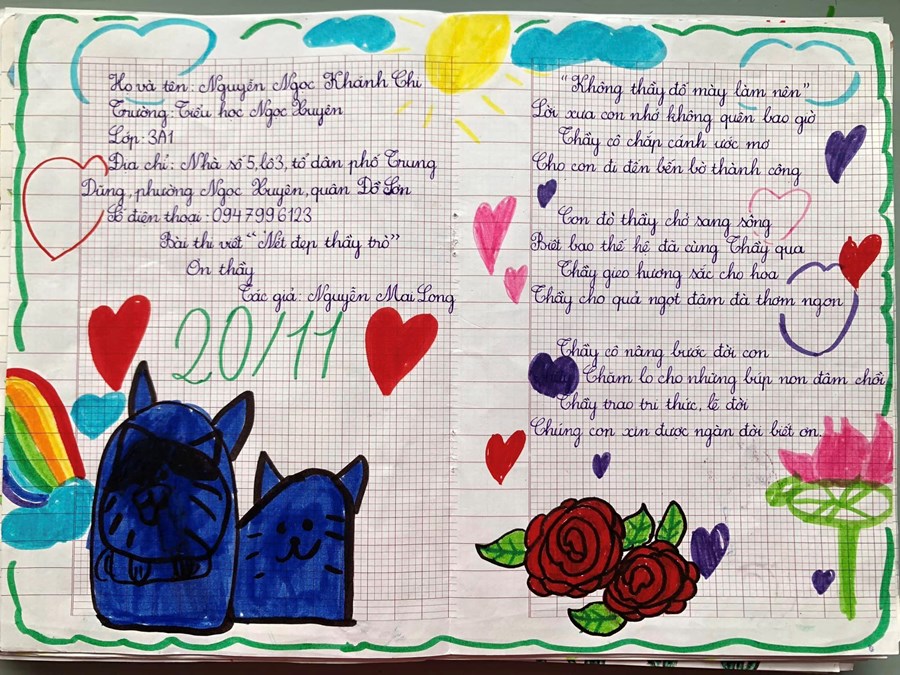 Họ và tên: Nguyễn Ngọc Khánh Chi
Trường: Tiểu học Ngọc Xuyên
Lớp: 3A1
Địa chỉ: Nhà số 5, lô 3, tổ dân phố Trung
Dũng, phường Ngọc Xuyên, quận Đồ Sơn
Số điện thoại: 0947996123
Bài thi viết "Nét đẹp thầy trò"
Ơn thầy
Tác giả: Nguyễn Mai Long
20/11
"Không thầy đố mày làm nên"
Lời xưa con nhớ không quên bao giờ
Thầy cô chắp cánh ước mơ
Cho con đi đến bến bờ thành công
Con đò thầy chở sang sông
Biết bao thế hệ đã cùng Thầy qua
Thầy gieo hương sắc cho hoa
Thầy cho quả ngọt đậm đà thơm ngon
Thầy cô nâng bước đời con
Chăm lo cho những búp non đâm chồi
Thầy trao tri thức, lẽ đời
Chúng con xin được ngàn đời biết ơn.